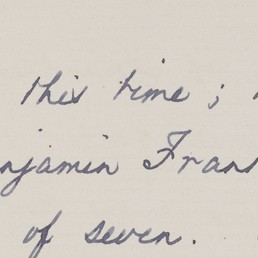 this time ;
njamin Fran
of seven.